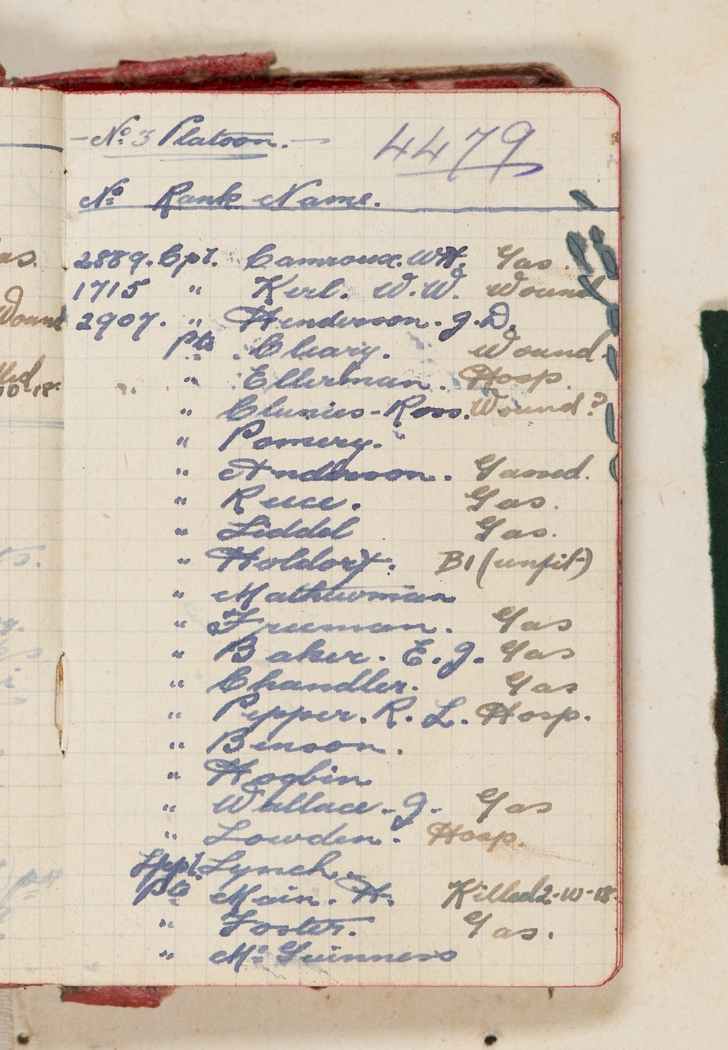 No 3 Platoon.
4479
No Rank Name.
2889. Cpl. Camroux. W.H. Gas.
1715 " Kerl. W.W. Wound
2907. " Henderson. J.D.
Pte Cleary. Wound.
" Ellerman. Hosp.
" Clunies-Ross. Wound?
" Pomery.
" Anderson. Gassed.
" Reece. Gas.
" Liddel Gas.
" Holdorf. B1 (unfit)
" Mathewman
" Freeman. Gas
" Baker. E.J. Gas
" Chandler. Gas
" Pepper. R. L. Hosp.
" Benson.
" Hogbin
" Wallace. J. Gas
" Lowden. Hosp.
Lynch.
Pte Main. H. Killed 2-10-18.
" Foster. Gas.
" McGuinness